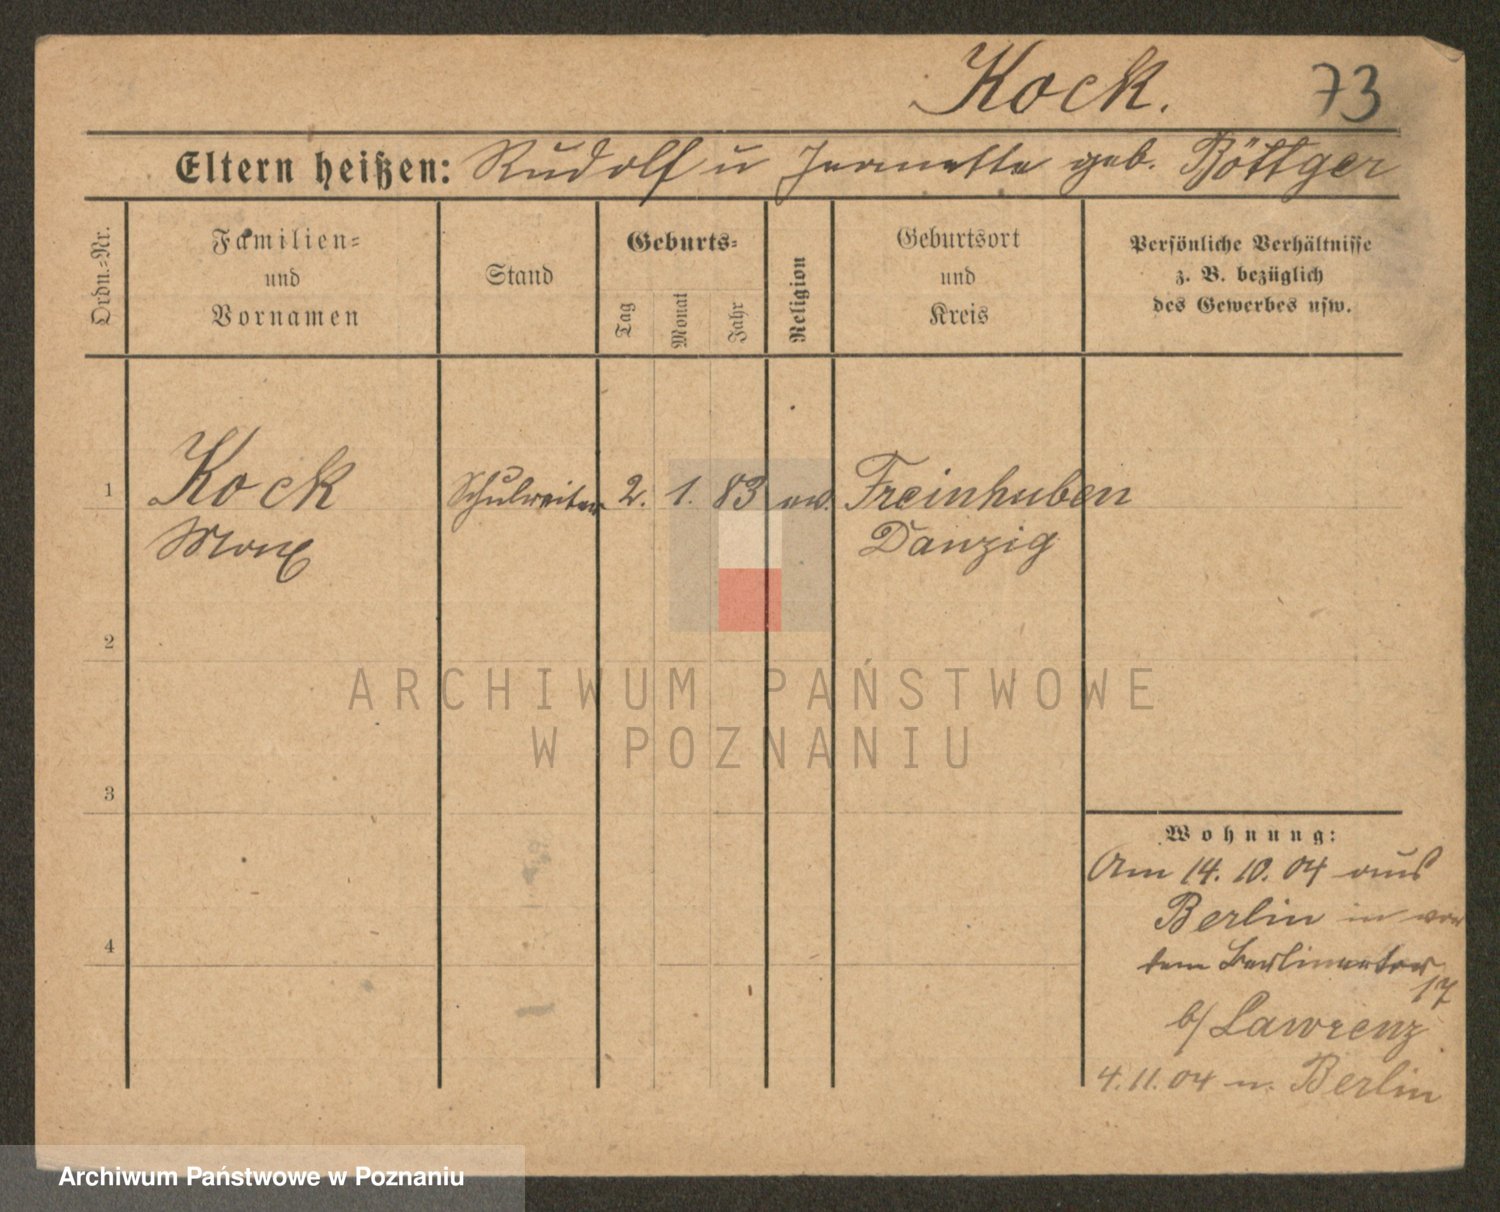 Kock. 73
Eltern heißen: Rudolf u Jeanette geb. Böttger
Ordn.-Nr.
Familien-
und
Vornamen
Stand
Geburts-
Tag
Monat
Jahr
Religion
Geburtsort
und
Kreis
Persönliche Verhältnisse
z. B. bezüglich
des Gewerbes usw.
1 Kock Schulreiter 2. 1. 83 ev. Freinhuben
Max Danzig
2
ARCHIWUM PAŃSTWOWE
W POZNANIU
3
Wohnung:
Am 14. 10. 04 aus
Berlin in vor
4 dem Berlinertor
17
b/ Lawrenz
4. 11. 04 n. Berlin
Archiwum Państwowe w Poznaniu